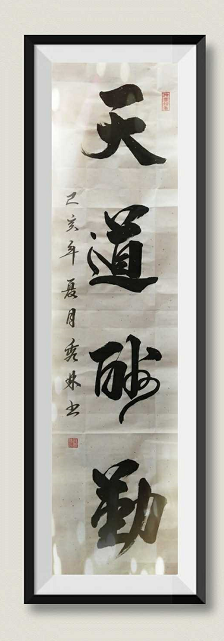 天道酬勤
己亥年夏月秀林书